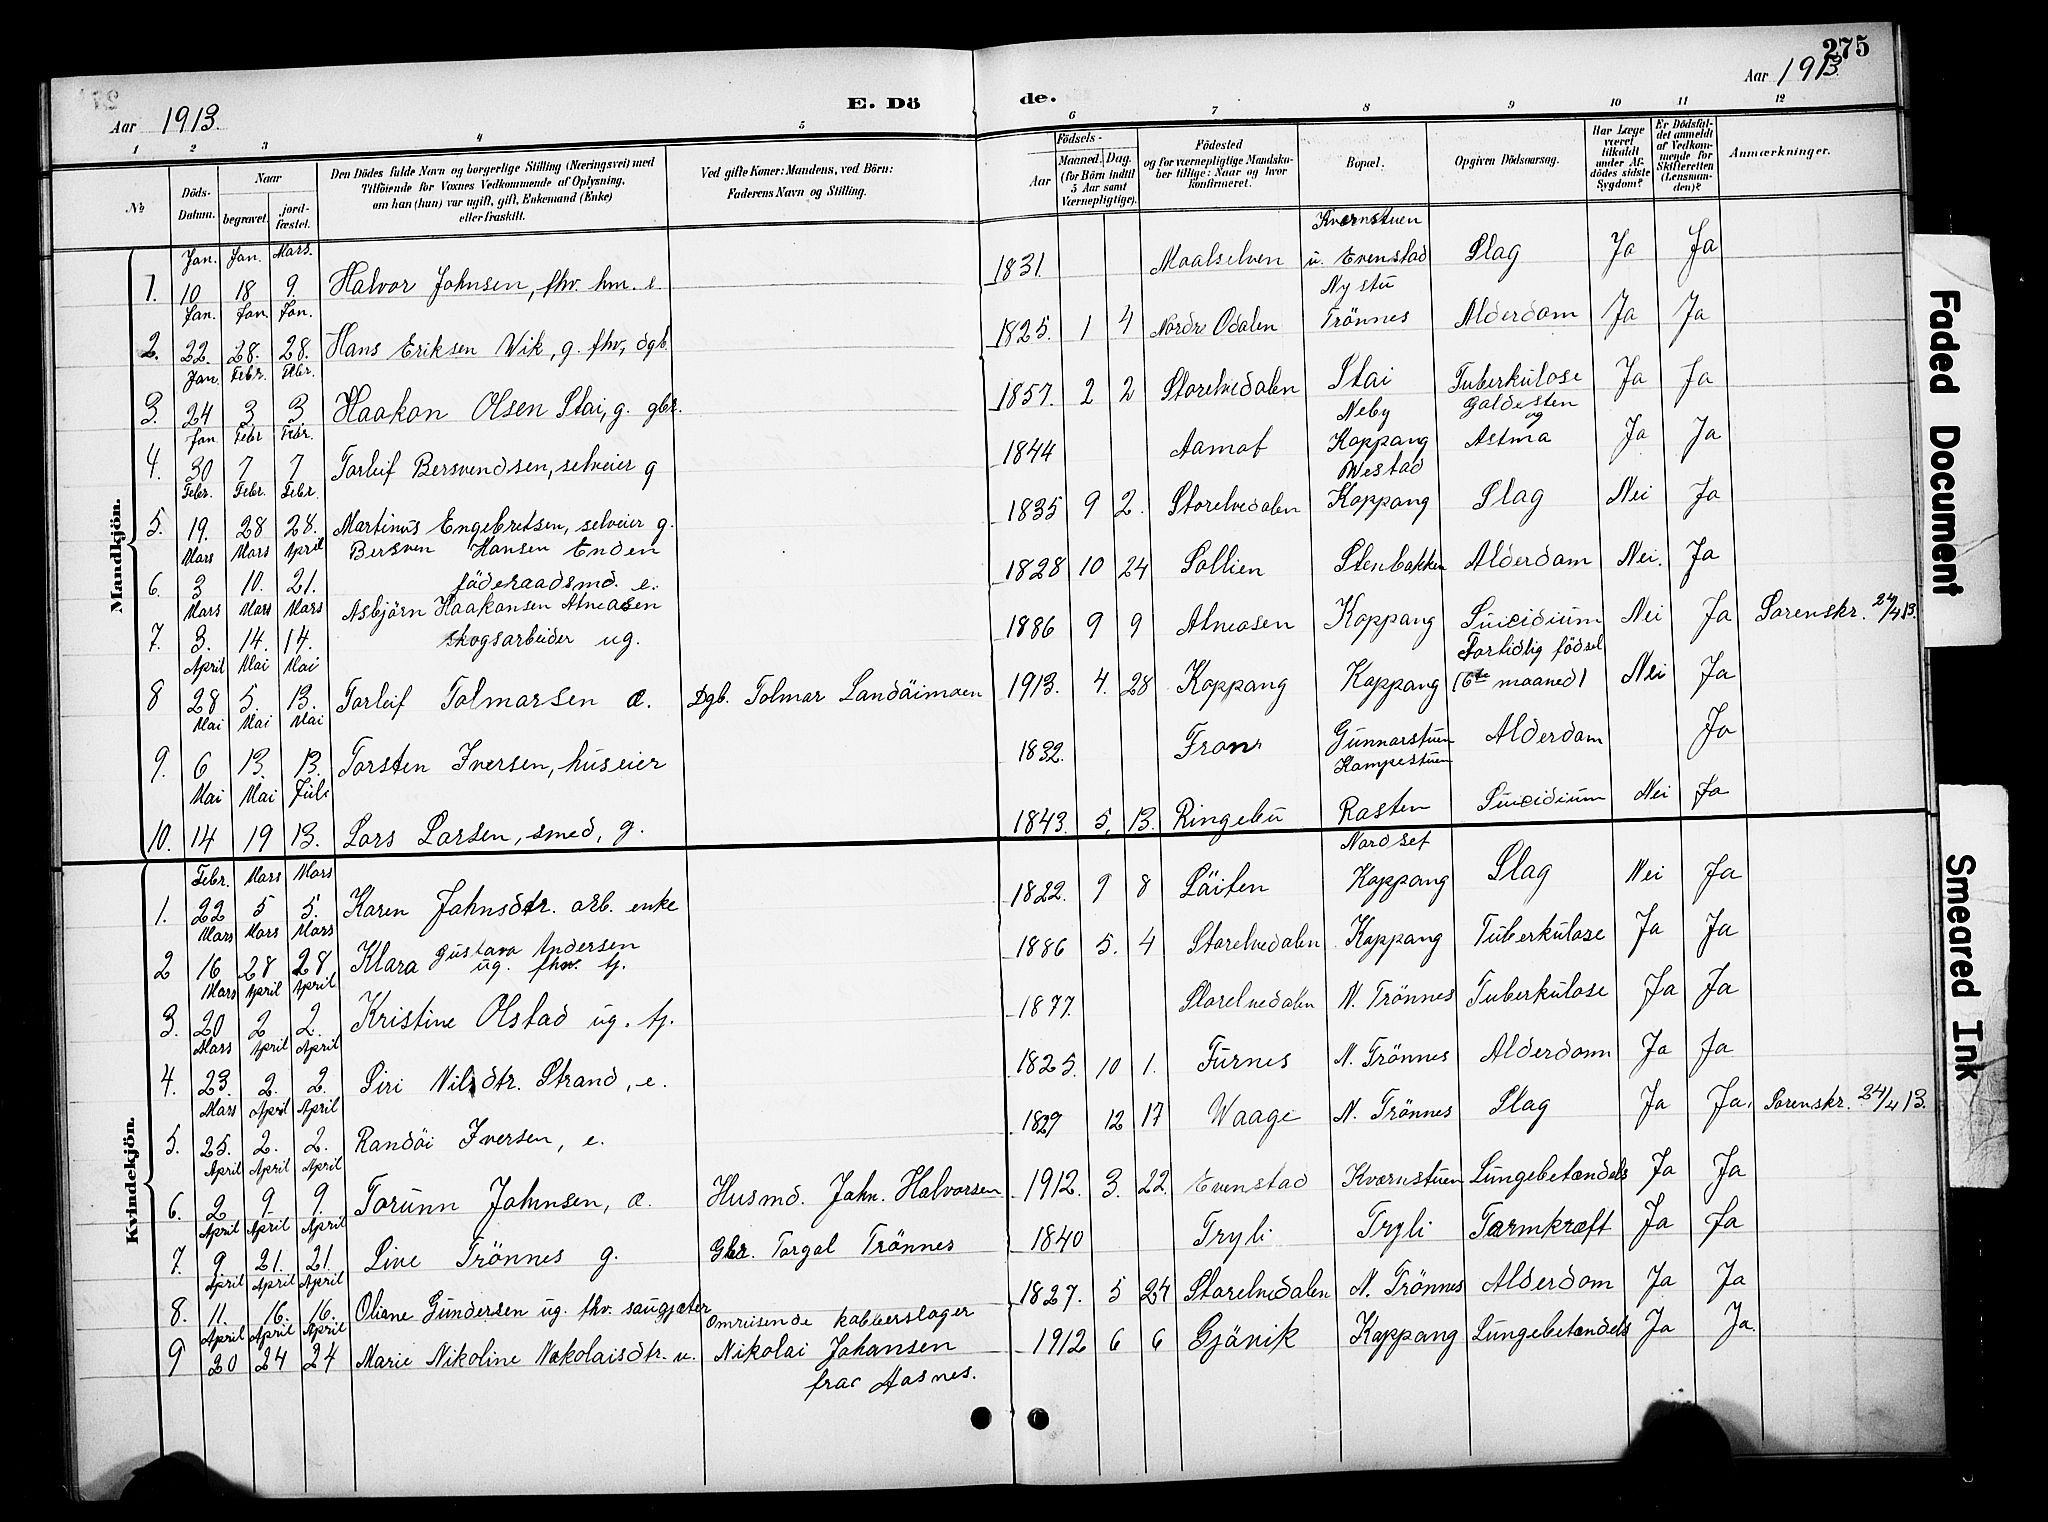 275
Aar 1913.
E. Dö
de.
Aar 1913
1 2 3 4 5 6 7 8 9 10 11 12
No
Döds-Datum.
Naar
begravet.
jord-fæstet.
Den Dödes fulde Navn og borgerlige Stilling (Næringsvei) med
Tilföiende for Voxnes Vedkommende af Oplysning,
om han (hun) var ugift, gift, Enkemand (Enke)
eller fraskilt.
Ved gifte Koner: Mandens, ved Börn:
Faderens Navn og Stilling.
Födsels-
Aar
Maaned. Dag.
(for Börn indtil
5 Aar samt
Værnepligtige).
Födested
og for værnepligtige Mandska-
ber tillige: Naar og hvor
konfirmeret.
Bopæl.
Opgiven Dödsaarsag.
Har Læge
været
tilkaldt
under Af-
dödes sidste
Sygdom?
Er Dödsfal-
det anmeldt
af Vedkom-
mende for
Skifteretten
(Lensman-
den)?
Anmærkninger.
Mandkjön.
1. Jan. 10 Jan. 18 Mars. 9. Halvor Johnsen, fhv. hm. e. 1831. Maalselven Kvernstuen u. Evenstad Slag Ja Ja
2. Jan. 22. Jan. 28. Jan. 28. Hans Eriksen Wik, g. fhv. dgb. 1825. 1 4 Nordre Odalen Nystu Trönnes Alderdom Ja Ja
3. Jan. 24 Febr. 3 Febr. 3 Haakon Olsen Stai, g. gbr. 1857. 2 2 Storelvedalen Stai Tuberkulose Ja Ja
4. Jan 30 Febr 7 Febr. 7 Torleif Bersvendsen, selveier g 1844 Aamot Neby Koppang Galdesten og Astma Ja Ja
5. Febr. 19. Febr. 28 Febr. 28. Martinus Engebretsen, selveier g. 1835 9 2. Storelvedalen Westad Koppang Slag Nei Ja
6. Mars 3 Mars 10. April 21. Bersven Hansen Enden föderaadsmd. e. 1828 10 24 Sollien Stenbakken Alderdom Nei. Ja
7. Mars 3. Mars 14. Mars 14. Asbjörn Haakonsen Atneosen skogsarbeider ug. 1886 9 9 Atneosen Koppang Suicidium Nei Ja Sorenskr. 24/4 13.
8 April 28 Mai 5. Mai 13. Torleif Tolmarsen æ. Dgb. Tolmar Landöimoen 1913. 4. 28 Koppang Koppang Fortidlig födsel (6te maaned) Nei Ja
9. Mai 6 Mai 13. Mai 13. Torsten Iversen, huseier 1832. Fron Gunnarstuen Alderdom Ja
10. Mai 14 Mai 19 Juli 13. Lars Larsen, smed, g. 1843. 5. 13. Ringebu Kampestuen Rasten Suicidium Nei Ja
Kvindekjön.
1. Febr. 22 Mars 5 Mars 5. Karen Johnsdtr. arb. enke 1822. 9 8 Löiten Nordset Koppang Slag Nei Ja
2 Mars 16 Mars 28 Mars 28 Klara Gustava Andersen ug. fhv. tj. 1886 5. 4 Storelvedalen Koppang Tuberkulose Ja Ja
3. Mars 20 April 2 April 2. Kristine Olstad ug. tj. 1877. Storelvedalen N. Trönnes Tuberkulose Ja Ja
4. Mars 23. April 2. April 2. Siri Nilsdtr. Strand, e. 1825. 10 1. Furnes N. Trönnes Alderdom Ja Ja
5. Mars 25. April 2. April 2. Randöi Iversen, e. 1829 12 17 Waage N. Trönnes Slag Ja Ja. Sorenskr. 24/4 13.
6. April 2 April 9. April 9. Torunn Johnsen, æ. Husmd. John. Halvorsen 1912. 3. 22. Evenstad Kvernstuen Lungebetændels Ja Ja
7. April 9 April 21. April 21. Line Trönnes g. Gbr. Torgal Trönnes 1840 Tryli Tryli Tarmkræft Ja Ja
8. April 11. April 16. April 16. Oliane Gundersen ug. fhv. saugjæter 1827. 5 24 Storelvedalen N. Trönnes Alderdom Ja Ja
9 April 20 April 24 April 24 Marie Nikoline Nikolaisdtr. u. Omreisende kobberslager Nikolai Johansen fra Aasnes. 1912 6 6 Gjövik Koppang Lungebetændels Ja Ja.
Faded Document
Smeared Ink